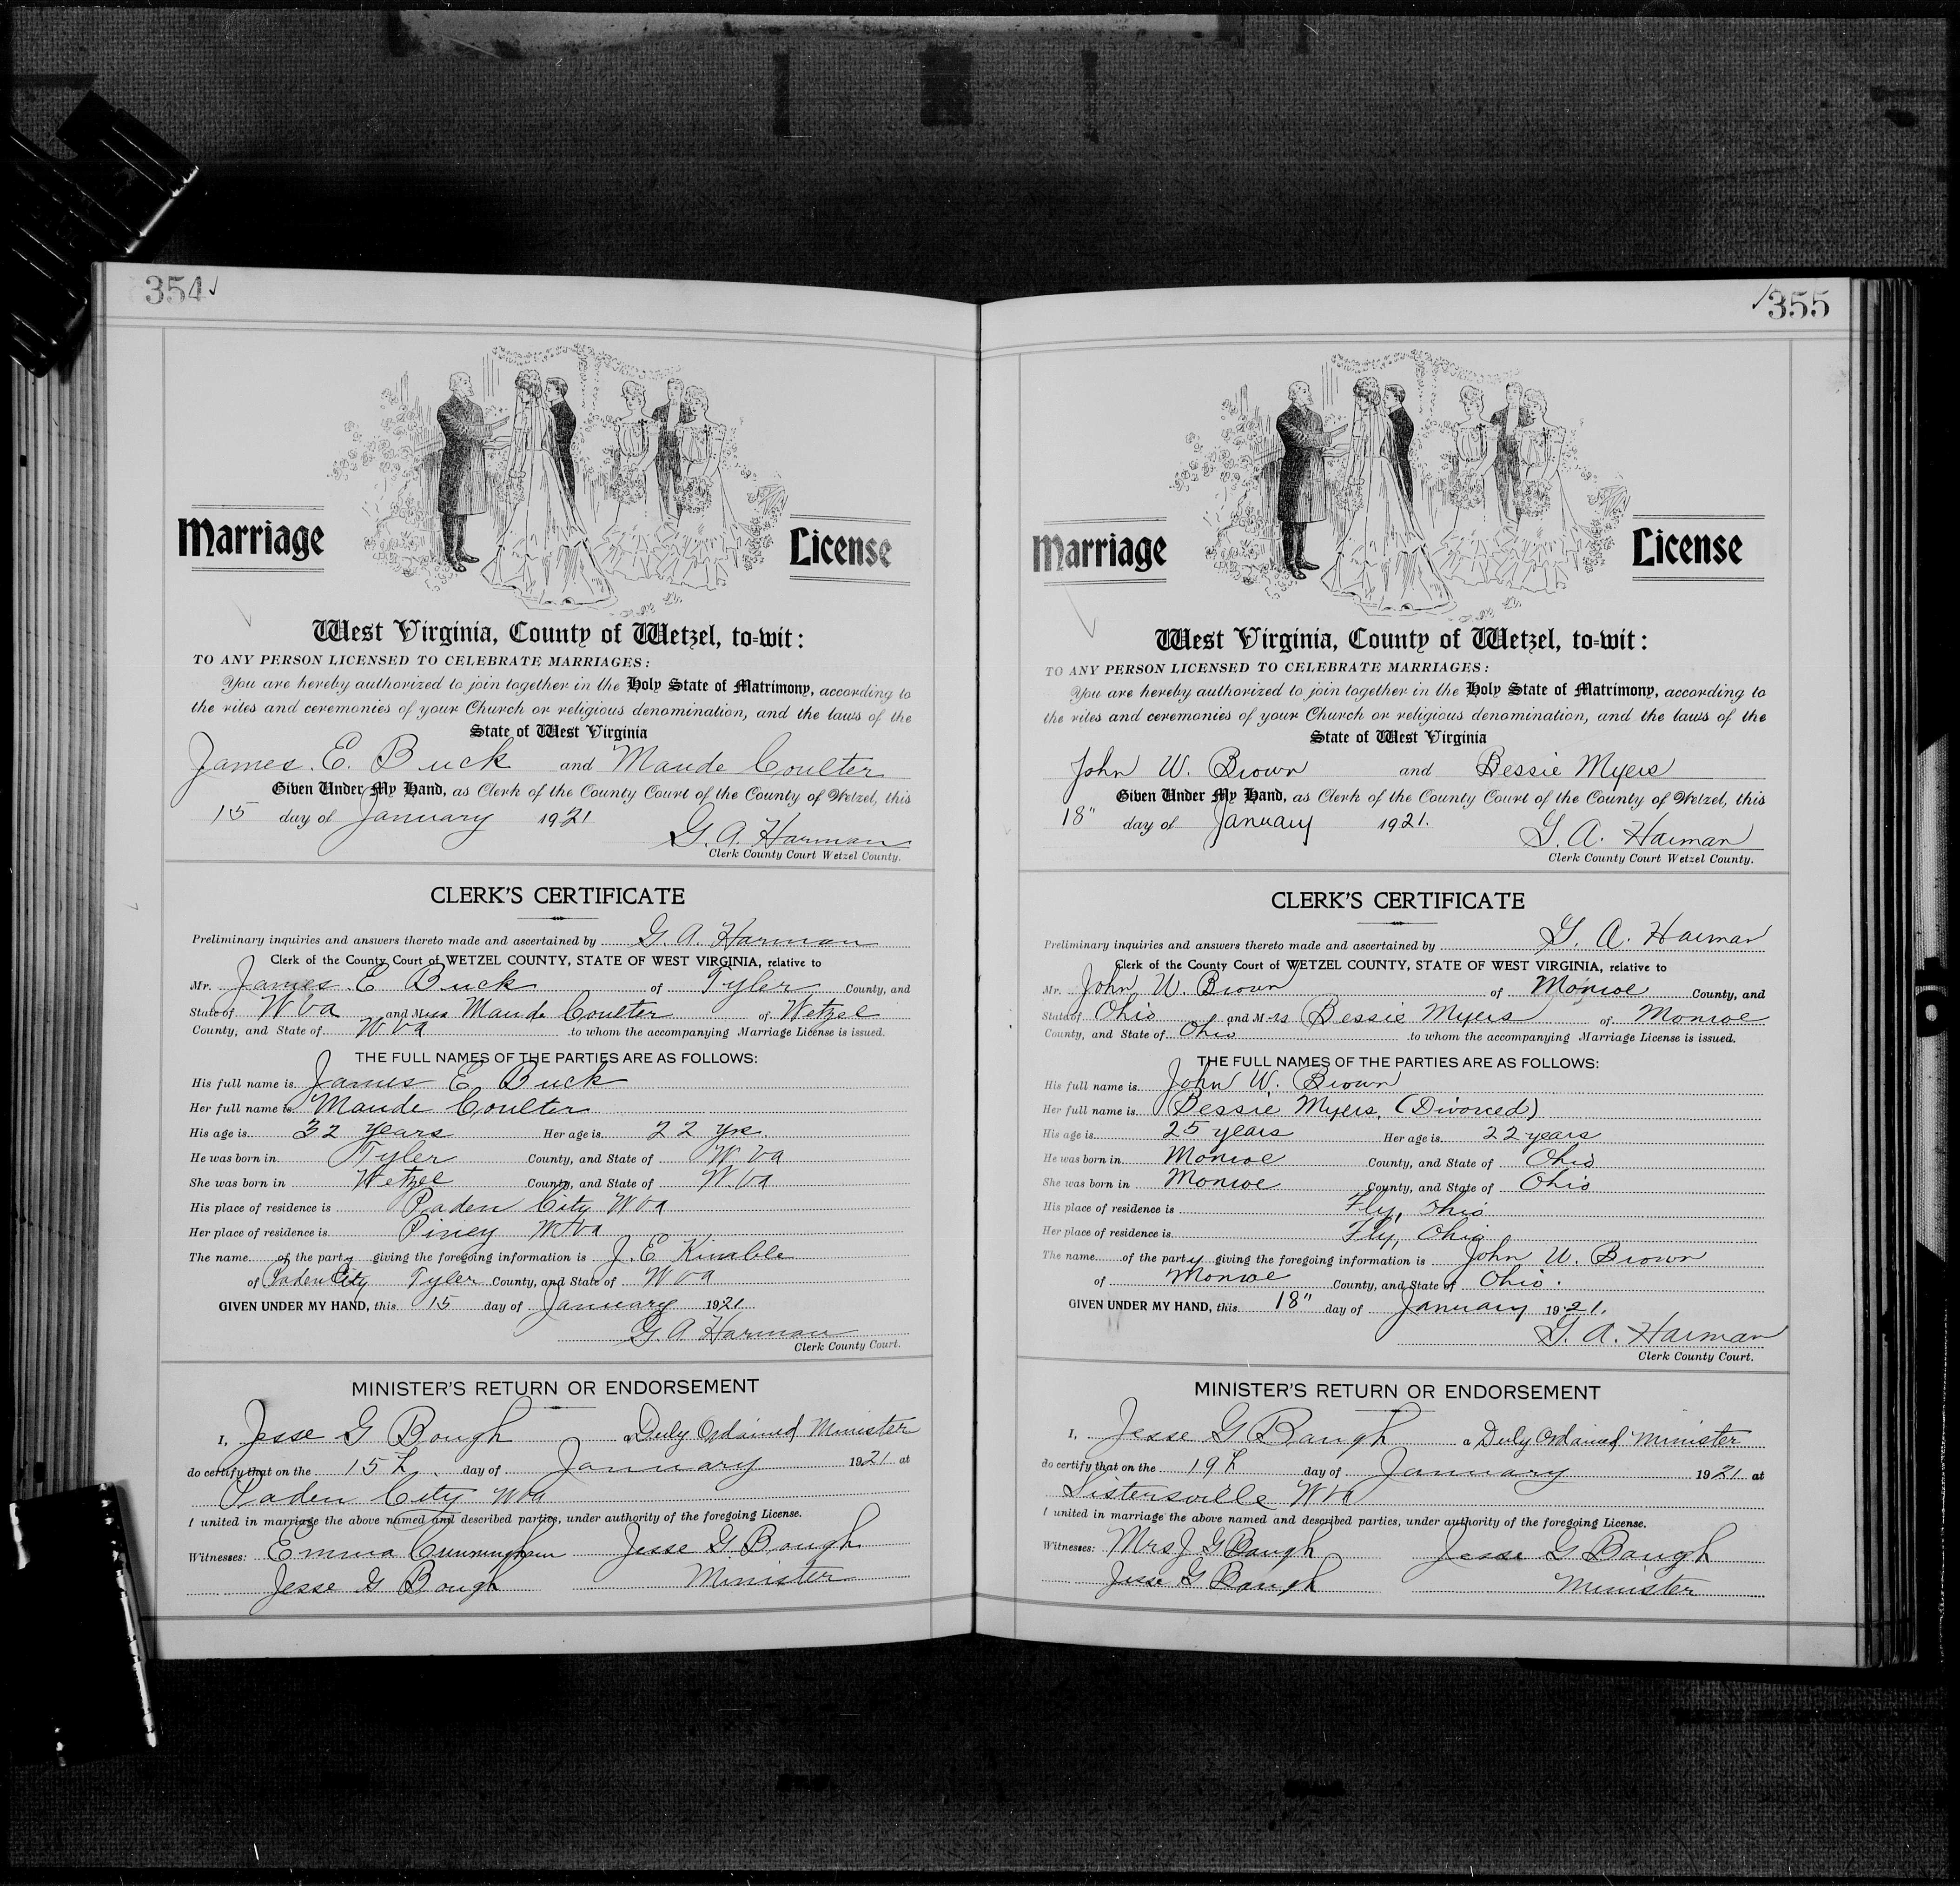 354
Marriage License
West Virginia, County of Wetzel, to=wit:
TO ANY PERSON LICENSED TO CELEBRATE MARRIAGES:
You are hereby authorized to join together in the Holy State of Matrimony, according to
the rites and ceremonies of your Church or religious denomination, and the laws of the
State of West Virginia
James. E. Buck and Maude Coulter
Given Under My Hand, as Clerk of the County Court of the County of Wetzel, this
15 day of January 1921
G. A. Harman
Clerk County Court Wetzel County.
CLERK'S CERTIFICATE
Preliminary inquiries and answers thereto made and ascertained by G. A. Harman
Clerk of the County Court of WETZEL COUNTY, STATE OF WEST VIRGINIA, relative to
Mr. James E Buck of Tyler County, and
State of W Va and Miss Maude Coulter of Wetzel
County, and State of W Va to whom the accompanying Marriage License is issued.
THE FULL NAMES OF THE PARTIES ARE AS FOLLOWS:
His full name is James E Buck
Her full name is Maude Coulter
His age is 32 years Her age is 22 yrs.
He was born in Tyler County, and State of W. Va
She was born in Wetzel County, and State of W. Va
His place of residence is Paden City W Va
Her place of residence is Piney W Va
The name of the party giving the foregoing information is J. E Kinable
of Paden City Tyler County, and State of W Va
GIVEN UNDER MY HAND, this 15 day of January 1921
G. A Harman
Clerk County Court.
MINISTER'S RETURN OR ENDORSEMENT
I, Jesse G Bough a Duly Ordained Minister
do certify that on the 15th day of January 1921 at
Paden City W Va
I united in marriage the above named and described parties, under authority of the foregoing License.
Witnesses: Emma Cunningham Jesse G. Bough
Jesse G Bough Minister
355
Marriage License
West Virginia, County of Wetzel, to=wit:
TO ANY PERSON LICENSED TO CELEBRATE MARRIAGES:
You are hereby authorized to join together in the Holy State of Matrimony, according to
the rites and ceremonies of your Church or religious denomination, and the laws of the
State of West Virginia
John W. Brown and Bessie Myers
Given Under My Hand, as Clerk of the County Court of the County of Wetzel, this
18" day of January 1921.
G. A. Harman
Clerk County Court Wetzel County.
CLERK'S CERTIFICATE
Preliminary inquiries and answers thereto made and ascertained by G. A. Harman
Clerk of the County Court of WETZEL COUNTY, STATE OF WEST VIRGINIA, relative to
Mr. John W. Brown of Monroe County, and
State of Ohio and Mrs Bessie Myers of Monroe
County, and State of Ohio to whom the accompanying Marriage License is issued.
THE FULL NAMES OF THE PARTIES ARE AS FOLLOWS:
His full name is John W. Brown
Her full name is Bessie Myers, (Divorced)
His age is 25 years Her age is 22 years
He was born in Monroe County, and State of Ohio
She was born in Monroe County, and State of Ohio
His place of residence is Fly, Ohio
Her place of residence is Fly, Ohio
The name of the party giving the foregoing information is John W. Brown
of Monroe County, and State of Ohio.
GIVEN UNDER MY HAND, this 18" day of January 1921.
G. A. Harman
Clerk County Court.
MINISTER'S RETURN OR ENDORSEMENT
I, Jesse G Baugh a Duly Ordained Minister
do certify that on the 19th day of January 1921 at
Sistersville W Va
I united in marriage the above named and described parties, under authority of the foregoing License.
Witnesses: Mrs J G Baugh Jesse G Baugh
Jesse G Baugh Minister